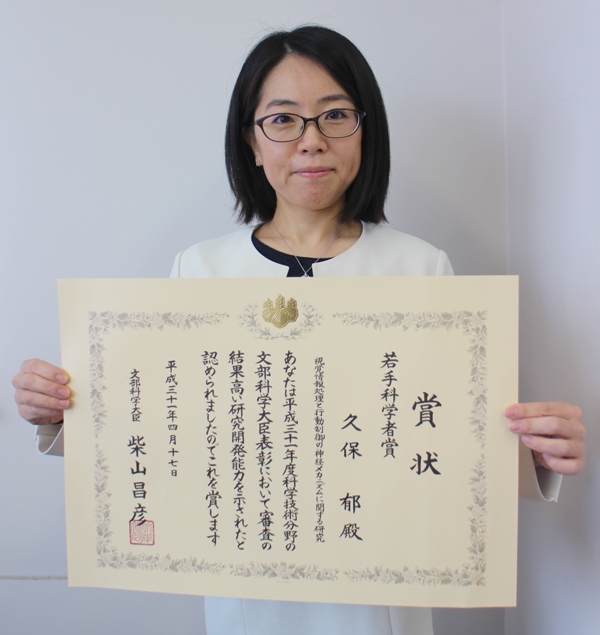 賞状
若手科学者賞
久保 郁 殿
視覚情報処理と行動制御の神経メカニズムに関する研究
あなたは平成三十一年度科学技術分野の
文部科学大臣表彰において審査の
結果高い研究開発能力を示されたと
認められましたのでこれを賞します
平成三十一年四月十七日
文部科学大臣 柴山昌彦